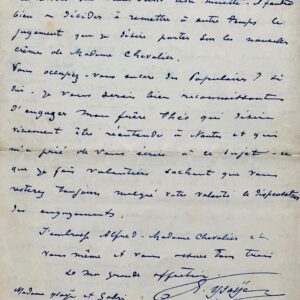 bien se décider à remettre à autre temps le
jugement que je désire porter sur les nouvelles
crème de Madame Chevalier.
Vous occupez-vous encore des Populaires ? Si
oui, je vous serais bien reconnaissant
d'engager mon frère Théo qui désire
vivement être réentendu à Nantes et qui
m'a prié de vous écrire à ce sujet - ce
que je fais volontiers sachant que vous
resterez toujours malgré votre volonté le dispensateur
des engagements.
J'embrasse Alfred - Madame Chevalier et
vous même et vous assure tous trois
de ma grande affection
E. Ysaÿe
Madame Ysaÿe et Gabri